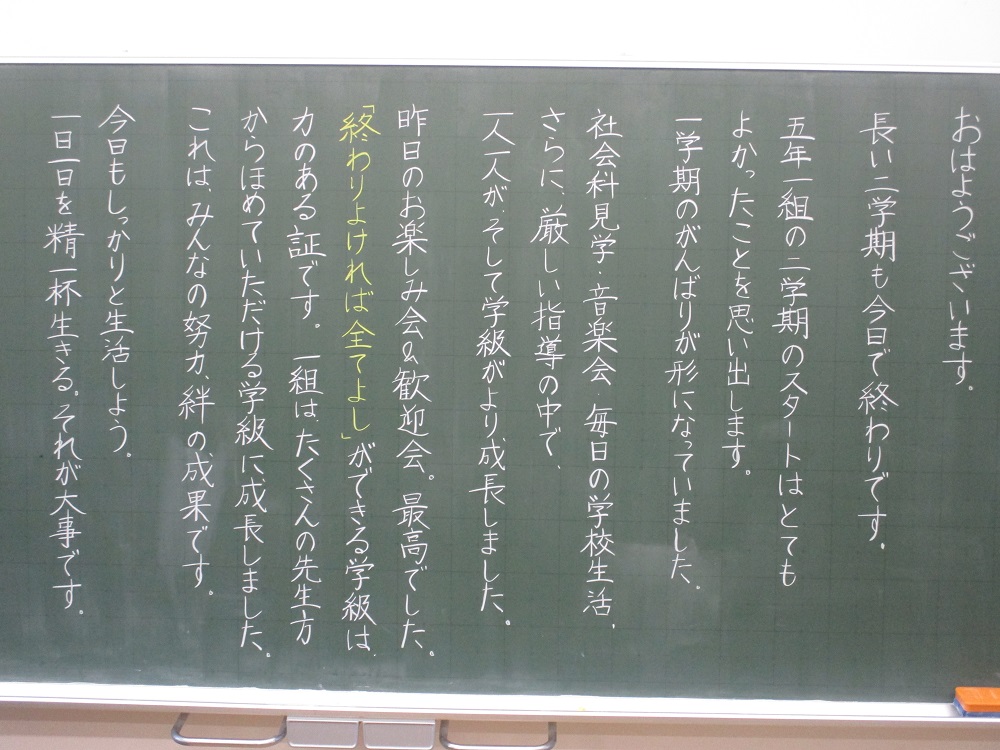 おはようございます。
長い二学期も今日で終わりです。
五年一組の二学期のスタートはとても
よかったことを思い出します。
一学期のがんばりが形になっていました。
社会科見学・音楽会・毎日の学校生活、
さらに、厳しい指導の中で、
一人一人が、そして学級がより成長しました。
昨日のお楽しみ会&歓迎会。最高でした。
「終わりよければ全てよし」ができる学級は
力のある証です。一組は、たくさんの先生方
からほめていただける学級に成長しました。
これは、みんなの努力、絆の成果です。
今日もしっかりと生活しよう。
一日一日を精一杯生きる。それが大事です。